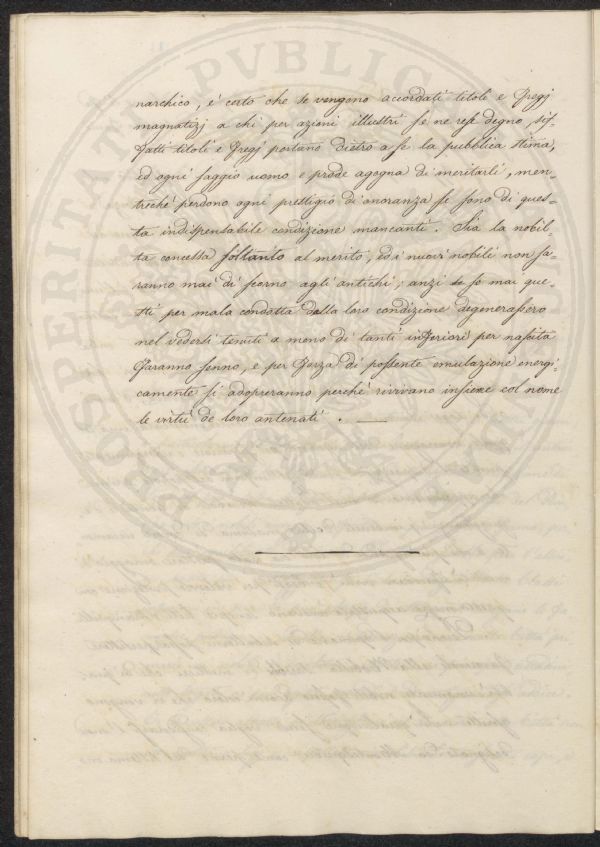 narchico, é certo che se vengono accordati titoli e fregj
magnatizj a chi per azioni illustri se ne rese degno, sif-
fatti titoli e fregj portano dietro a se la pubblica stima,
ed ogni saggio uomo e prode agogna di meritarli, men-
treché perdono ogni prestigio di onoranza se sono di ques-
ta indispensabile condizione mancanti. Sia la nobil-
ta concessa soltanto al merito, ed i nuovi nobili non sa-
ranno mai di scorno agli antichi; anzi se mai que-
sti per mala condotta dalla loro condizione degenerassero
nel vedersi tenuti a meno di tanti inferiori per nascita
faranno senno, e per forza di possente emulazione energi-
camente si adopreranno perché rivivano insieme col nome
le virtú de loro antenati.